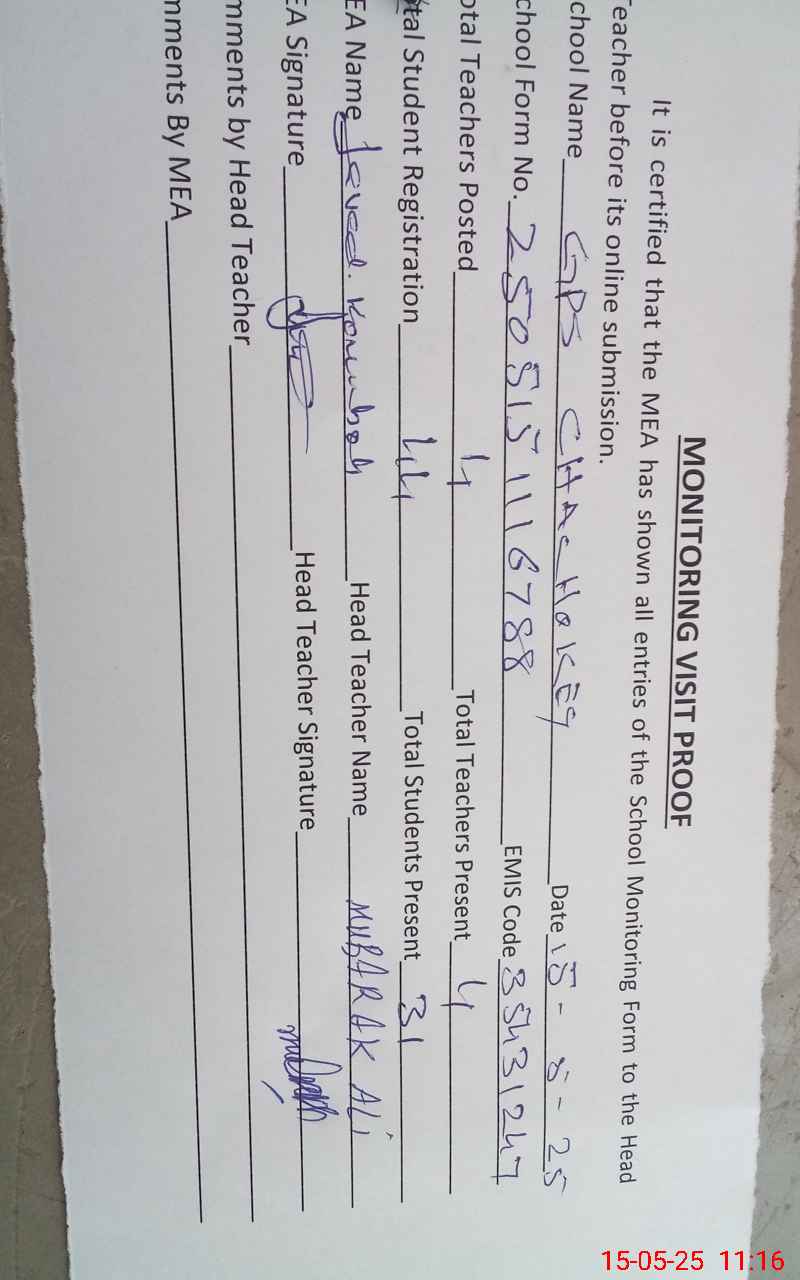 MONITORING VISIT PROOF
It is certified that the MEA has shown all entries of the School Monitoring Form to the Head
Teacher before its online submission.
chool Name GPS CHACHOKEY Date 15-5-25
chool Form No. 2505151116788 EMIS Code
otal Teachers Posted 4 Total Teachers Present 4
tal Student Registration 44 Total Students Present 31
EA Name Javed. Head Teacher Name MUBARAK ALI
EA Signature Head Teacher Signature
mments by Head Teacher
mments By MEA
15-05-25 11:16